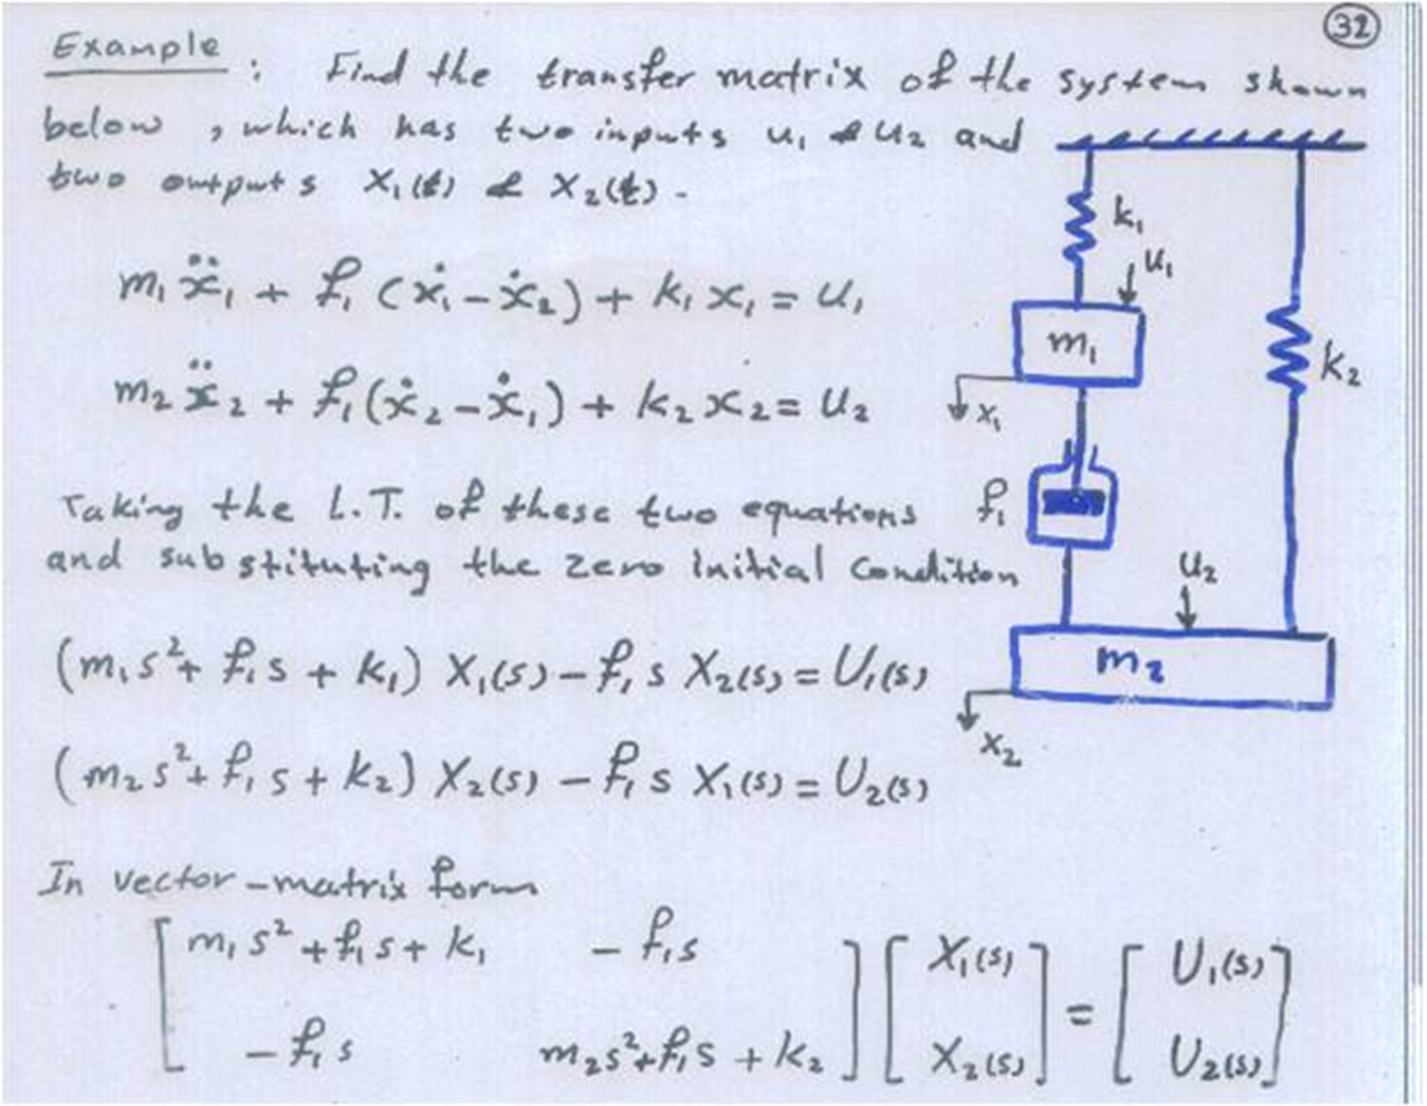 32
Example : Find the transfer matrix of the system shown
below , which has two inputs u₁ & u₂ and
two outputs X₁(t) & X₂(t).
k₁
u₁
m₁ẍ₁ + f₁(ẋ₁-ẋ₂) + k₁x₁ = u₁
m₁
k₂
m₂ẍ₂ + f₁(ẋ₂-ẋ₁) + k₂x₂ = u₂
x₁
Taking the L.T. of these two equations
f₁
and substituting the zero initial condition
u₂
(m₁s²+ f₁s + k₁) X₁(s) - f₁s X₂(s) = U₁(s)
m₂
x₂
(m₂s²+ f₁s + k₂) X₂(s) - f₁s X₁(s) = U₂(s)
In vector-matrix form
[ m₁s²+f₁s+k₁ -f₁s ] [ X₁(s) ] = [ U₁(s) ]
[ -f₁s m₂s²+f₁s+k₂ ] [ X₂(s) ] [ U₂(s) ]